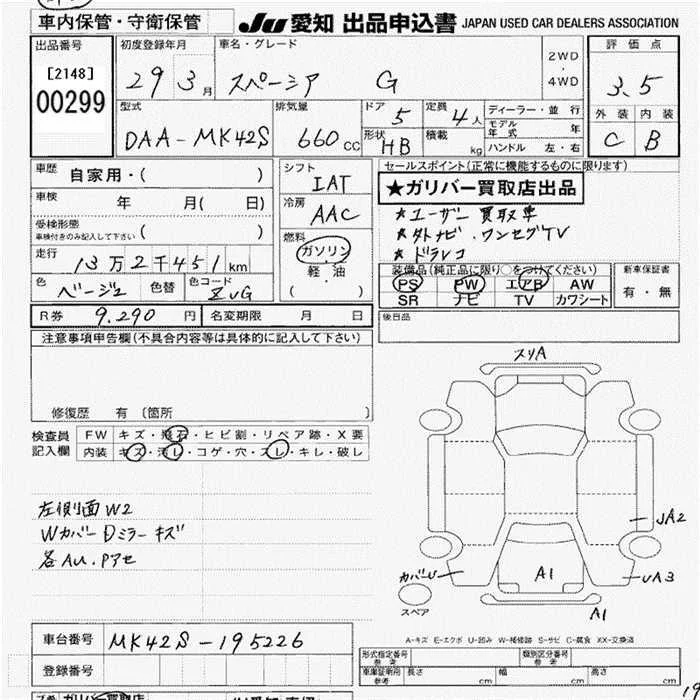 車内保管・守衛保管
JU 愛知 出品申込書 JAPAN USED CAR DEALERS ASSOCIATION
出品番号
[2148]
00299
初度登録年月
29 3月
車名・グレード
スペーシア G
2WD
・
4WD
評価点
3.5
外装 内装
C B
型式
DAA-MK42S
排気量
660 cc
ドア
5
定員
4人
形状
HB
積載
kg
ディーラー・並行
モデル年式 年
ハンドル 左・右
車歴
自家用・( )
車検
年 月( 日)
受検形態
車検付きのみ記入して下さい ( )
走行
13万2千451km
色
ベージュ
色替
色コード
ZVG
シフト
IAT
冷房
AAC
燃料
ガソリン
・
軽・油
( )
セールスポイント(正常に機能するものに限ります)
★ガリバー買取店出品
★ユーザー買取車
★外ナビ.ワンセグTV
★ドラレコ
装備品(純正品に限り○をつけてください)
PS PW エアB AW
SR ナビ TV カワシート
新車保証書
有・無
R券
9.290円
名変期限 月 日
後日品
注意事項申告欄(不具合内容等は具体的に記入して下さい)
修復歴 有〔箇所 〕
検査員記入欄
FW キズ・飛石・ヒビ割・リペア跡・X要
内装 キズ・汚レ・コゲ・穴・スレ・キレ・破レ
左側面W2
Wカバー Dミラーキズ
各AU.Pアセ
スリA
JA2
カバーU
A1
UA3
スペア
A1
A-キズ E-エクボ U-凹み W-補修跡 S-サビ C-腐食 XX-交換済
車台番号
MK42S-195226
登録番号
形式指定番号
参考
類別区分番号
参考
車庫証明用
参考
長さ 幅 高さ
ガリバー買取店